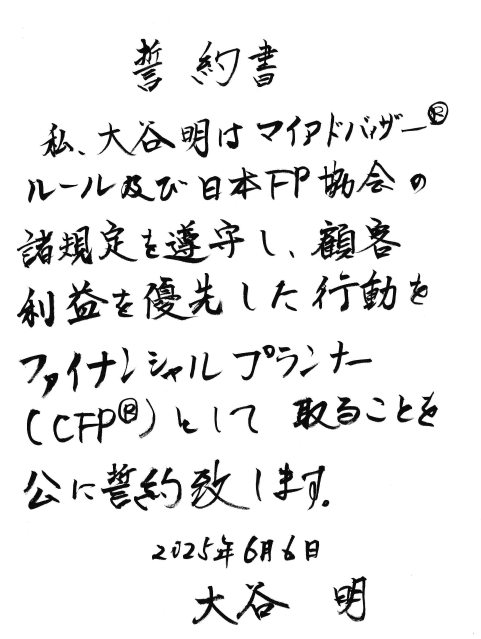 誓約書
私、大谷明はマイアドバイザー®
ルール及び日本FP協会の
諸規定を遵守し、顧客
利益を優先した行動を
ファイナンシャルプランナー
(CFP®)として取ることを
公に誓約致します。
2025年6月6日
大谷 明